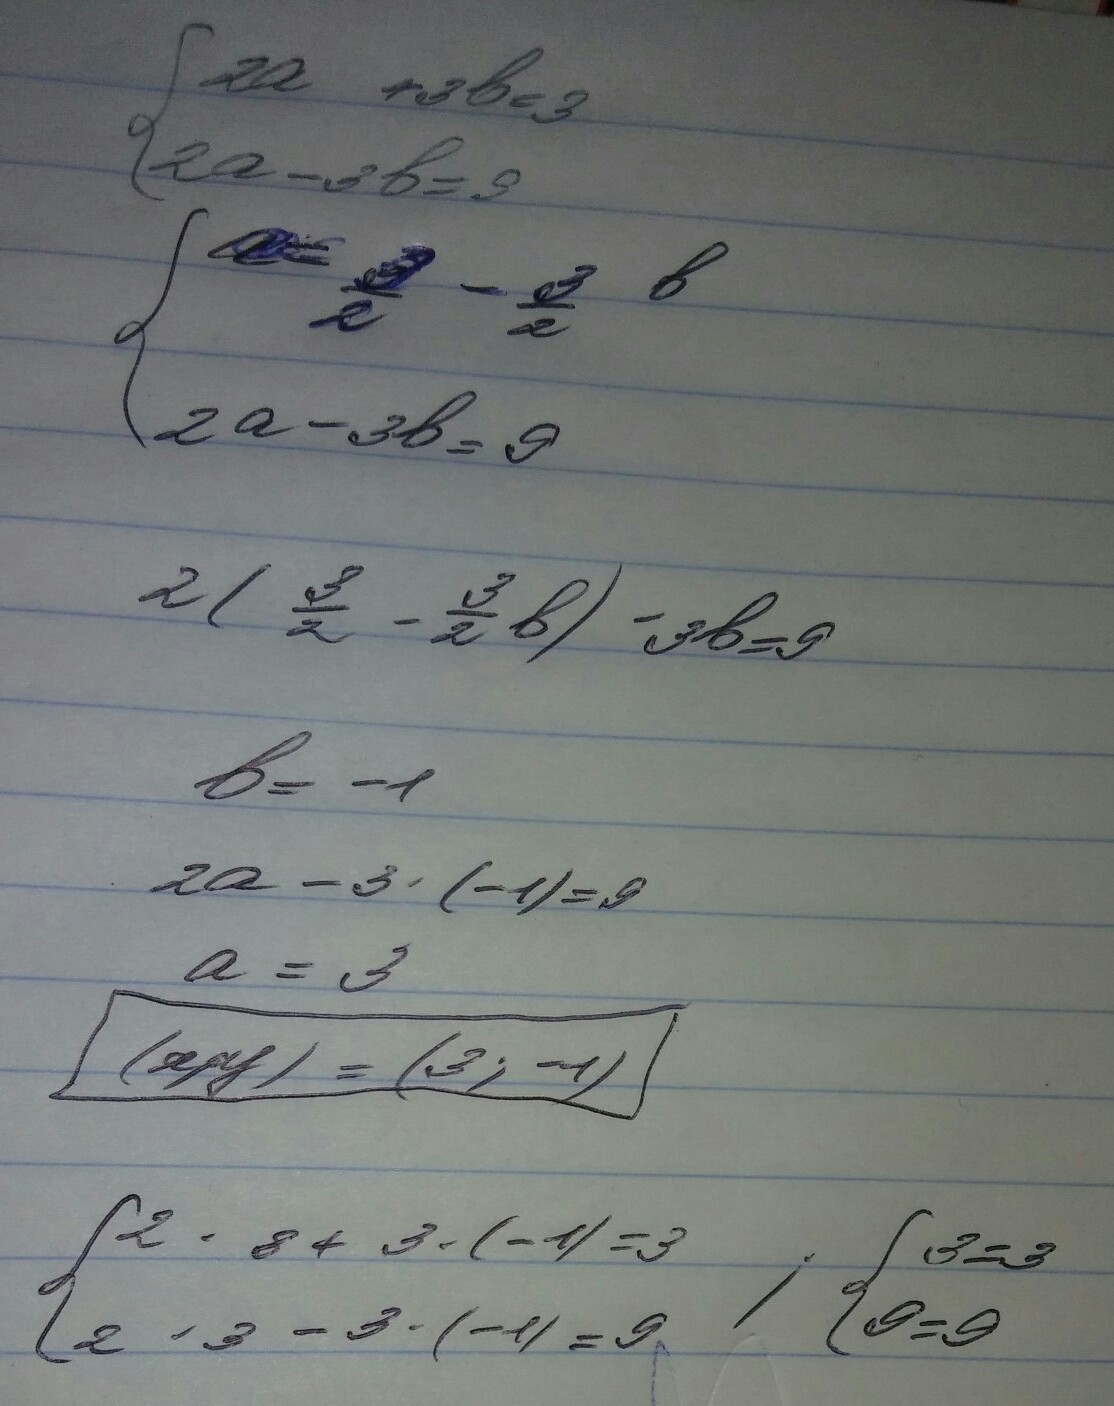 2a + 3b = 3
2a - 3b = 9
a = 3/2 - 3/2 b
2a - 3b = 9
2(3/2 - 3/2 b) - 3b = 9
b = -1
2a - 3 · (-1) = 9
a = 3
(x;y) = (3; -1)
{ 2 · 3 + 3 · (-1) = 3 ; { 3 = 3
2 · 3 - 3 · (-1) = 9 9 = 9